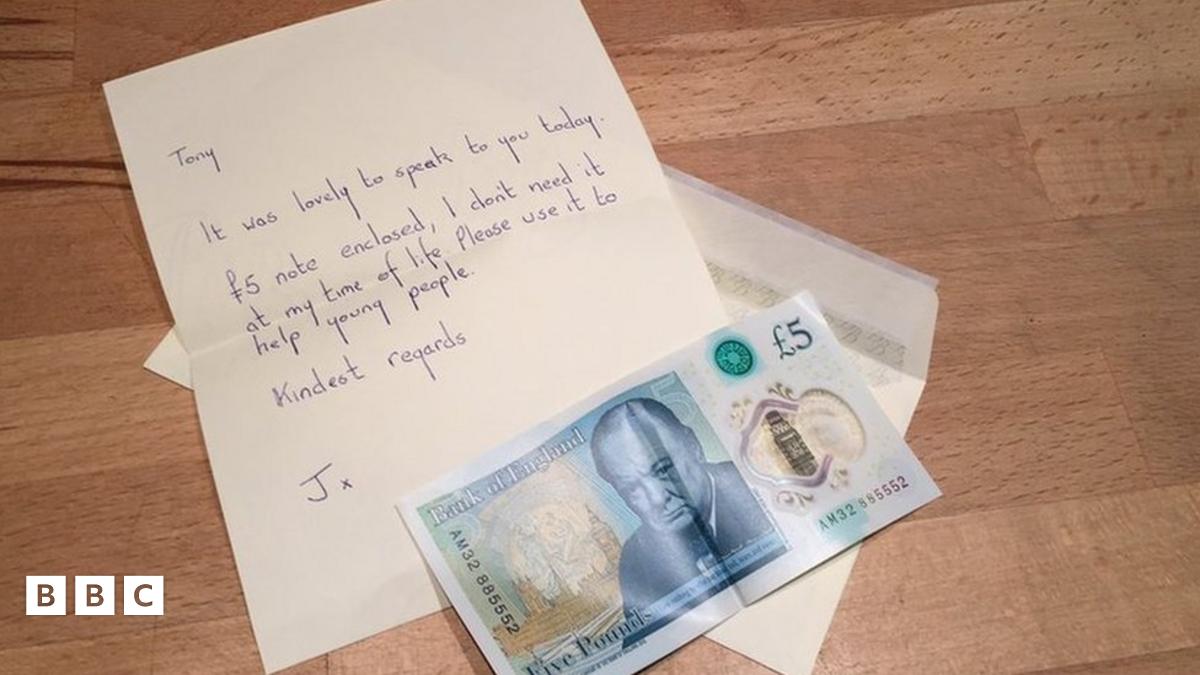 Tony
It was lovely to speak to you today.
£5 note enclosed, I don't need it
at my time of life. Please use it to
help young people.
Kindest regards
J x
£5
5
Bank of England
AM32 885552
AM32 885552
Five Pounds
BBC